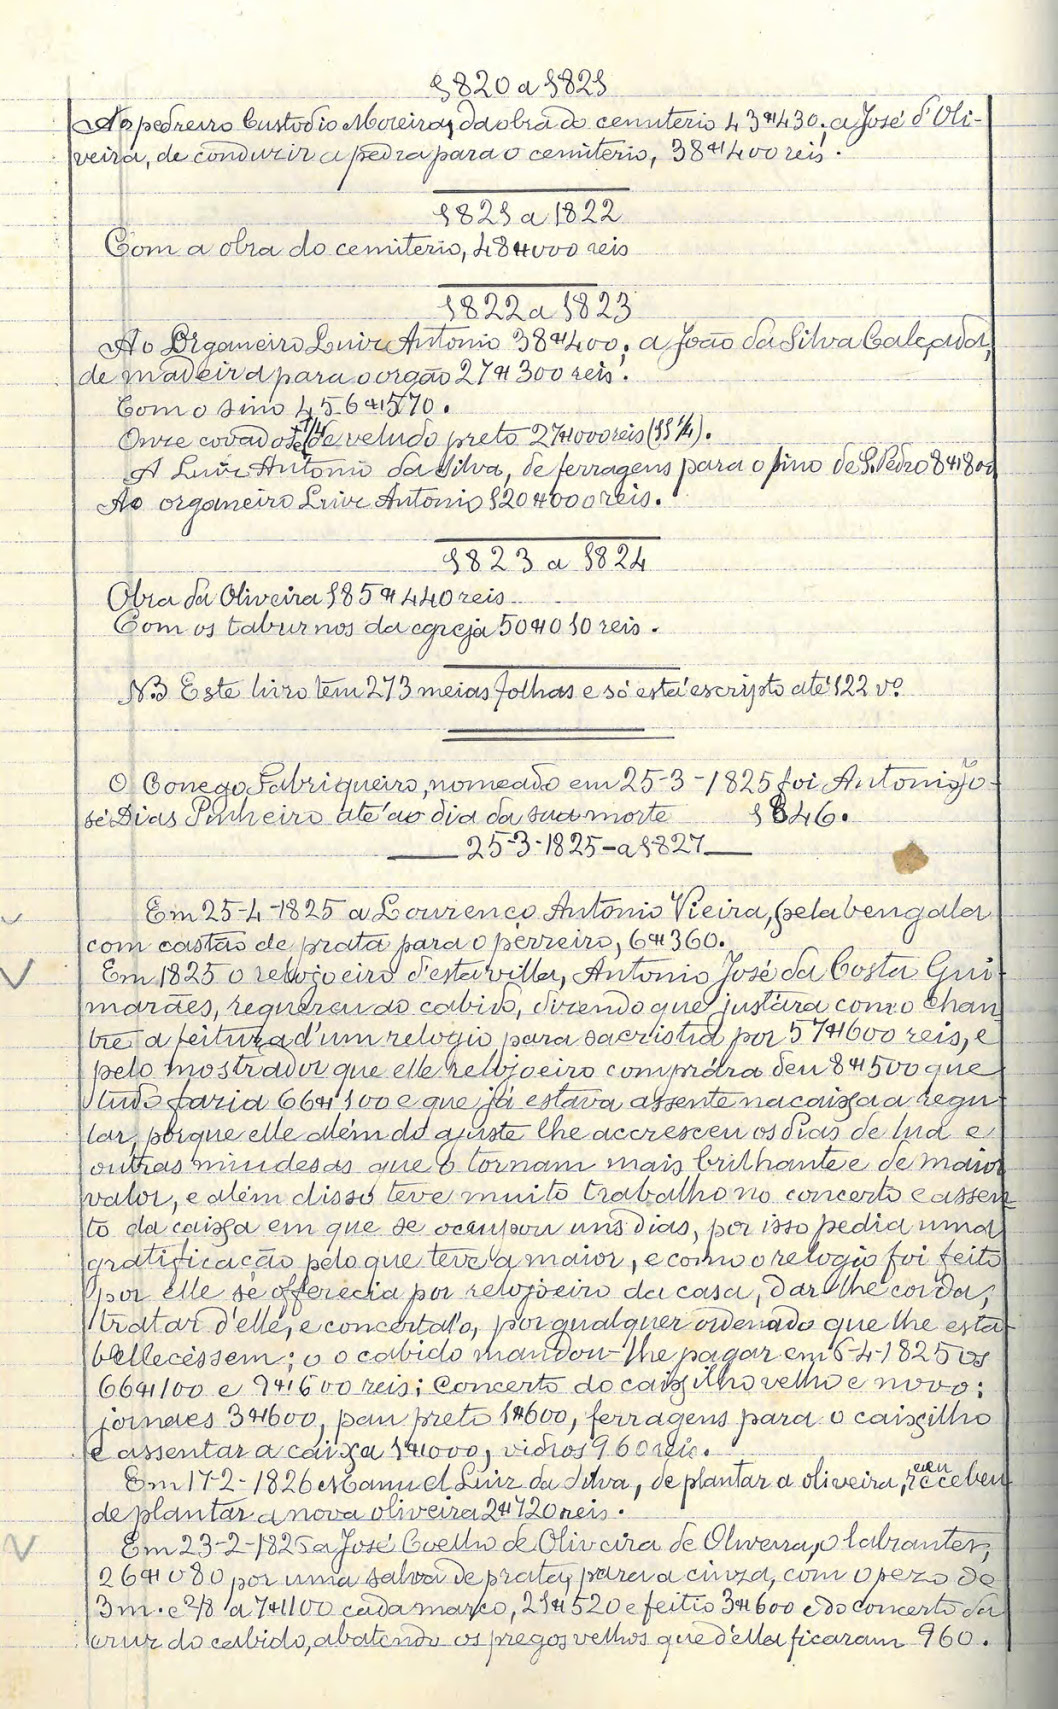 1820 a 1821
Ao pedreiro Custodio Moreira, da obra do cemiterio 43$430; a José d'Oli-
veira, de conduzir a pedra para o cemiterio, 38$400 reis.
1821 a 1822
Com a obra do cemiterio, 48$000 reis
1822 a 1823
Ao Organeiro Luiz Antonio 38$400; a João da Silva Calçador,
de madeira para o orgão 27$300 reis.
Com o sino 456$570.
Onze covados e 1/4 de veludo preto 27$000 reis (11 1/4).
A Luiz Antonio da Silva, de ferragens para o sino de S. Pedro 8$800
Ao organeiro Luiz Antonio 120$000 reis.
1823 a 1824
Obra da Oliveira 185$440 reis
Com os taburnos da egreja 50$010 reis.
NB Este livro têm 273 meias folhas e só está escripto até 122 vº
O Conego Fabriqueiro, nomeado em 25-3-1825 foi Antonio Jo-
sé Dias Pinheiro até ao dia da sua morte 1846.
25-3-1825-a 1827
Em 25-4-1825 a Lourenço Antonio Vieira, pela bengala
com castão de prata para o perreiro, 6$360.
Em 1825 o relojoeiro d'esta villa, Antonio José da Costa Gui-
marães, requereu ao cabido, dizendo que justára com o Chan-
tre a feitura d'um relogio para sacristia por 57$600 reis, e
pelo mostrador que elle relojoeiro comprára deu 8$500 que
tudo fazia 66$100 e que já estava assente na caixa a regu-
lar, porque elle além do ajuste lhe accresceu os dias de lua e
outras miudesas que o tornam mais brilhante e de maior
valor, e além disso teve muito trabalho no concerto e assen-
to da caixa em que se ocupou uns dias, por isso pedia uma
gratificação pelo que teve a maior, e como o relogio foi feito
por elle se offerecia por relojoeiro da casa, dar-lhe corda,
tratar d'elle, e concertal'o, por qualquer ordenado que lhe esta-
bellecessem; o o cabido mandou-lhe pagar em 6-4-1825 os
66$100 e 9$600 reis; Concerto do caixilho velho e novo:
jornaes 3$600, pau preto 1$600, ferragens para o caixilho
e assentar a caixa 1$000, vidros 960 reis.
Em 17-2-1826 Manuel Luiz da Silva, de plantar a oliveira, receben
de plantar a nova oliveira 2$720 reis.
Em 23-2-1825 a José Coelho de Oliveira de Oliveira, o labrantes,
26$080 por uma salva de prata, para a cinza, com o pezo de
3 m. e 2/8 a 7$100 cada março, 21$520 e feitio 3$600 e do concerto da
cruz do cabido, abatendo os pregos velhos que d'ella ficaram 960.